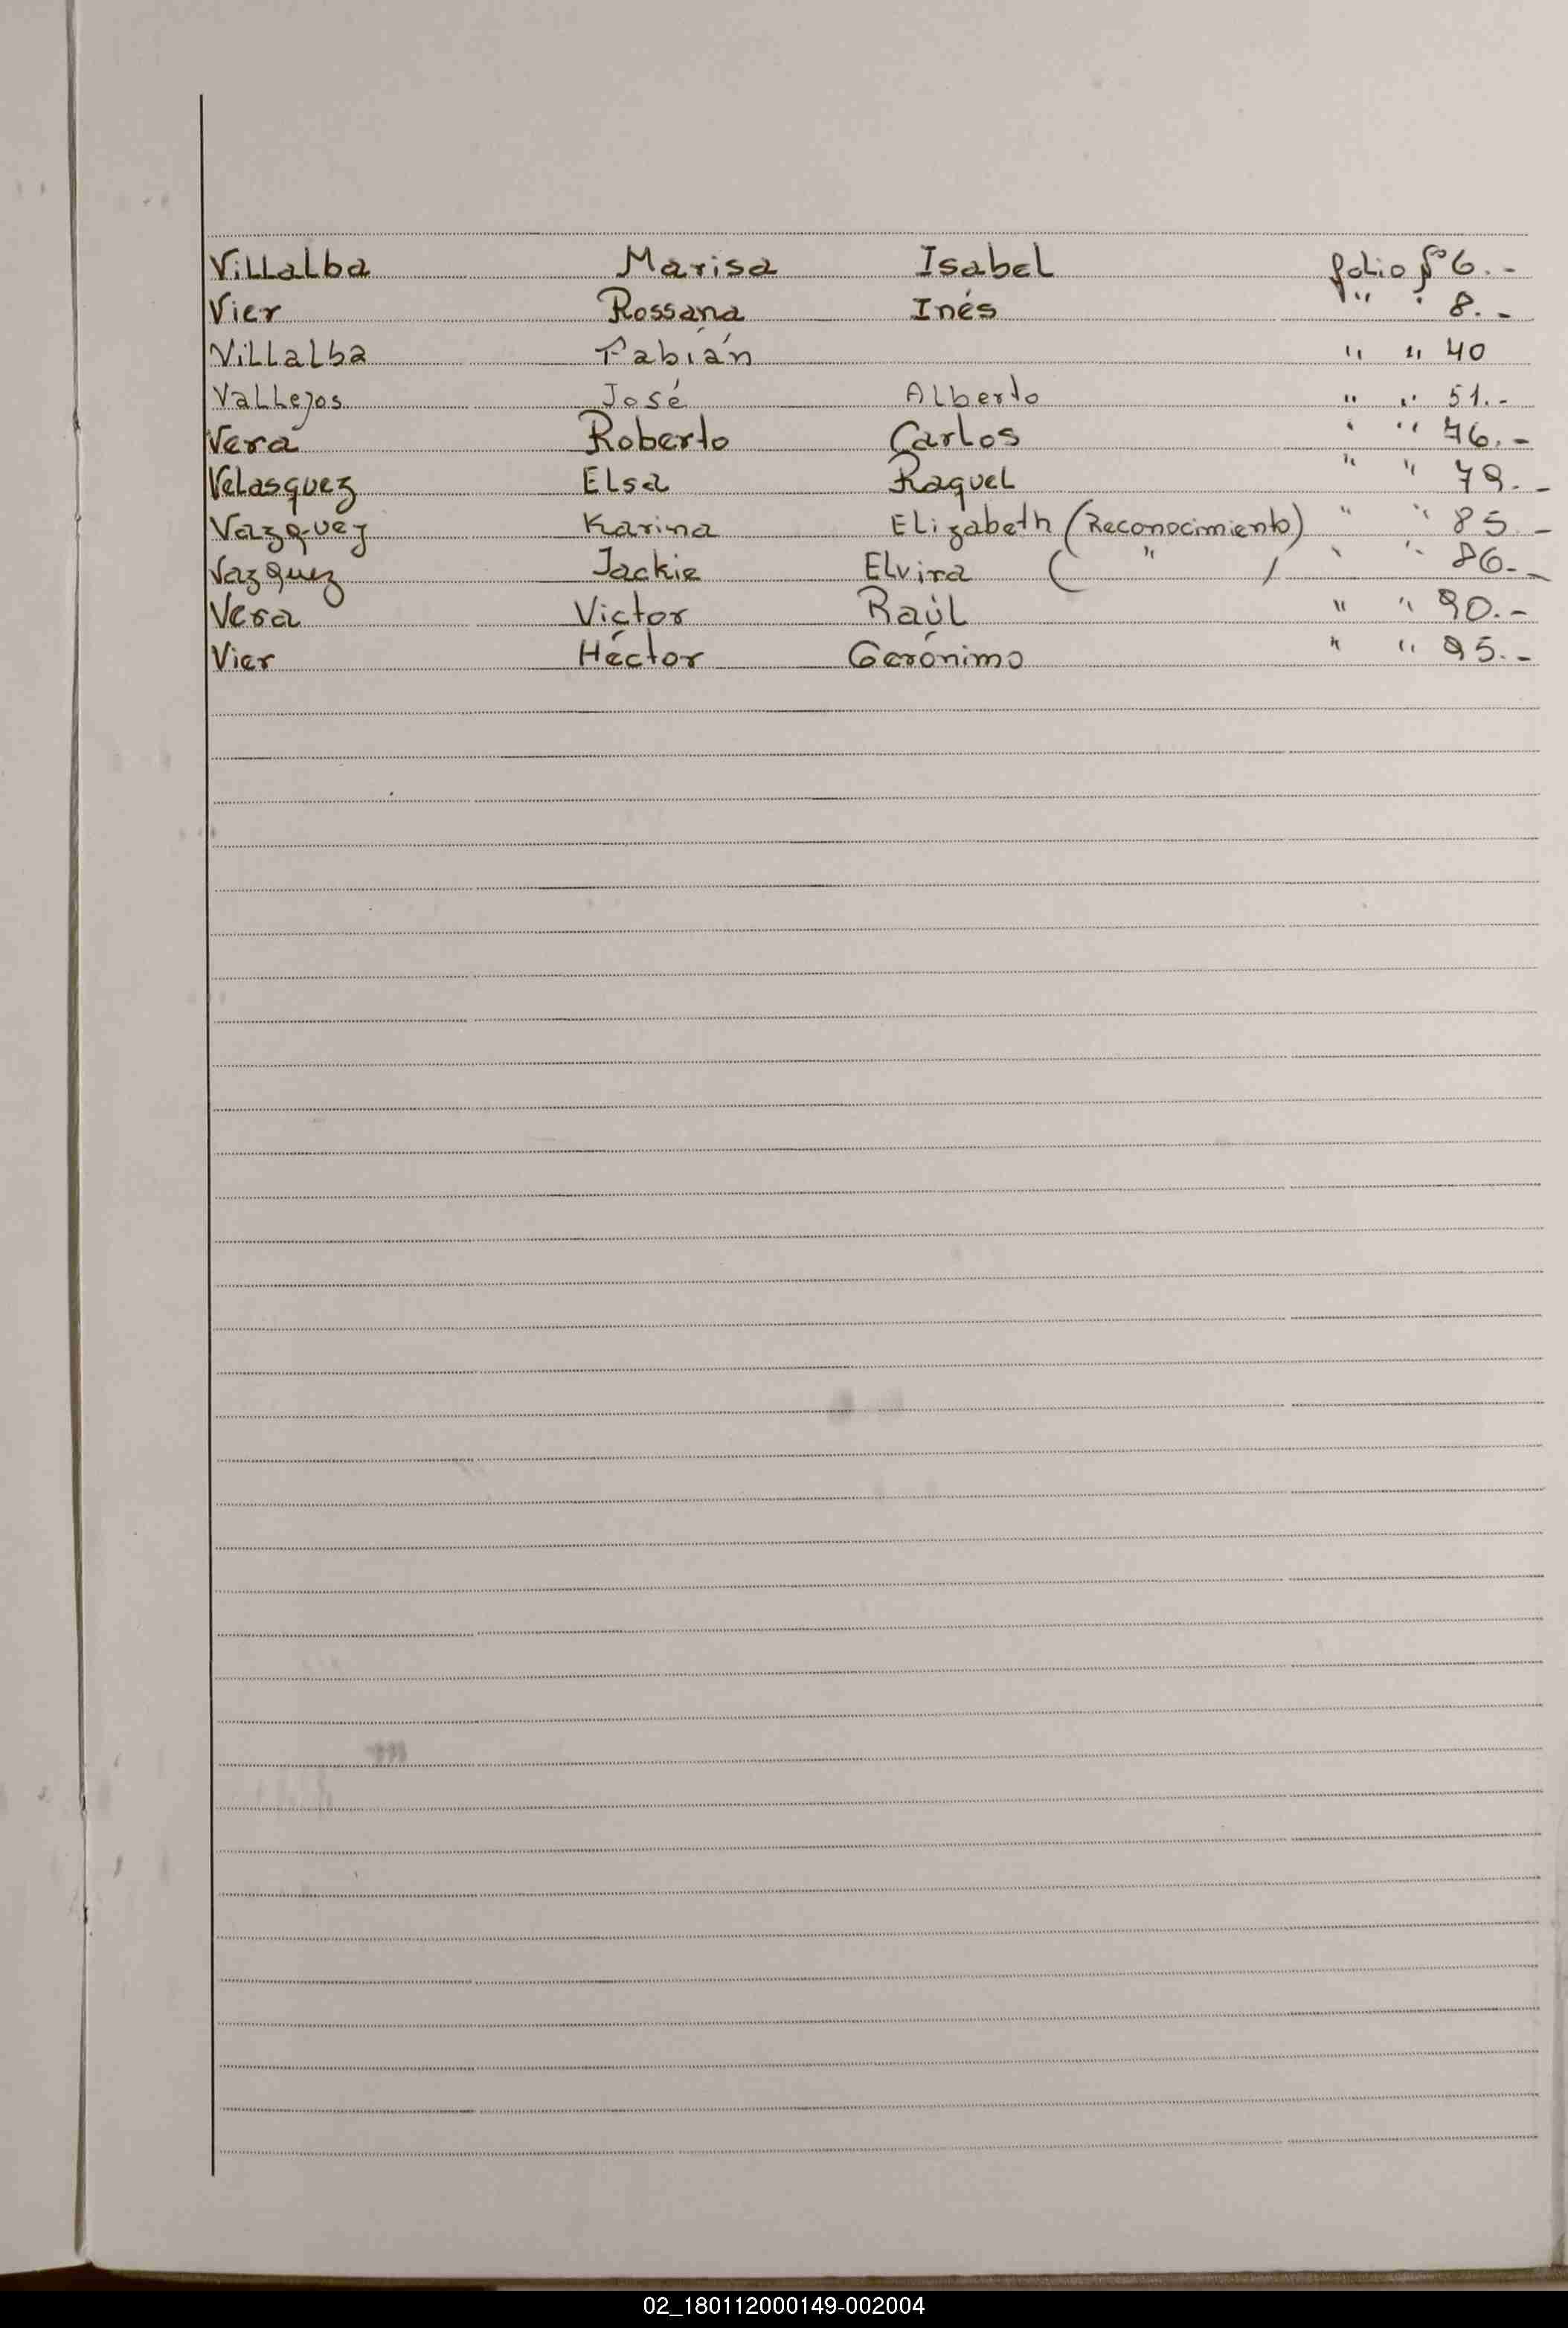 Villalba Marisa Isabel folio Nº 6.-
Vier Rossana Inés " " 8.-
Villalba Fabián " " 40
Vallejos José Alberto " " 51.-
Vera Roberto Carlos " " 76.-
Velasquez Elsa Raquel " " 79.-
Vazquez Karina Elizabeth (Reconocimiento) " " 85.-
Vazquez Jackie Elvira ( " ) " " 86.-
Vera Victor Raúl " " 90.-
Vier Héctor Gerónimo " " 95.-
02_180112000149-002004